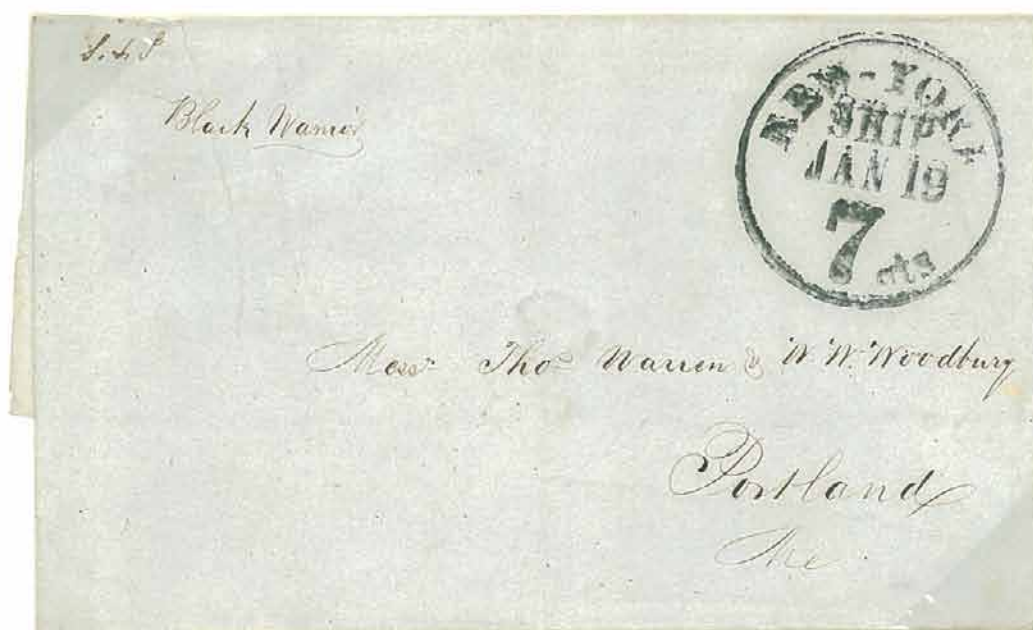 S.S.S
Black Warrior
NEW-YORK
SHIP
JAN 19
7 cts
Messr Tho Warren & W. W. Woodbury
Portland
Me